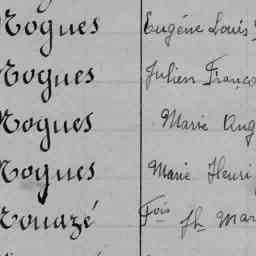 Nogues Eugéne Louis
Nogues Julien Franço
Nogues Marie Ang
Nogues Marie Henri
Nouazé Fois Jh Mar